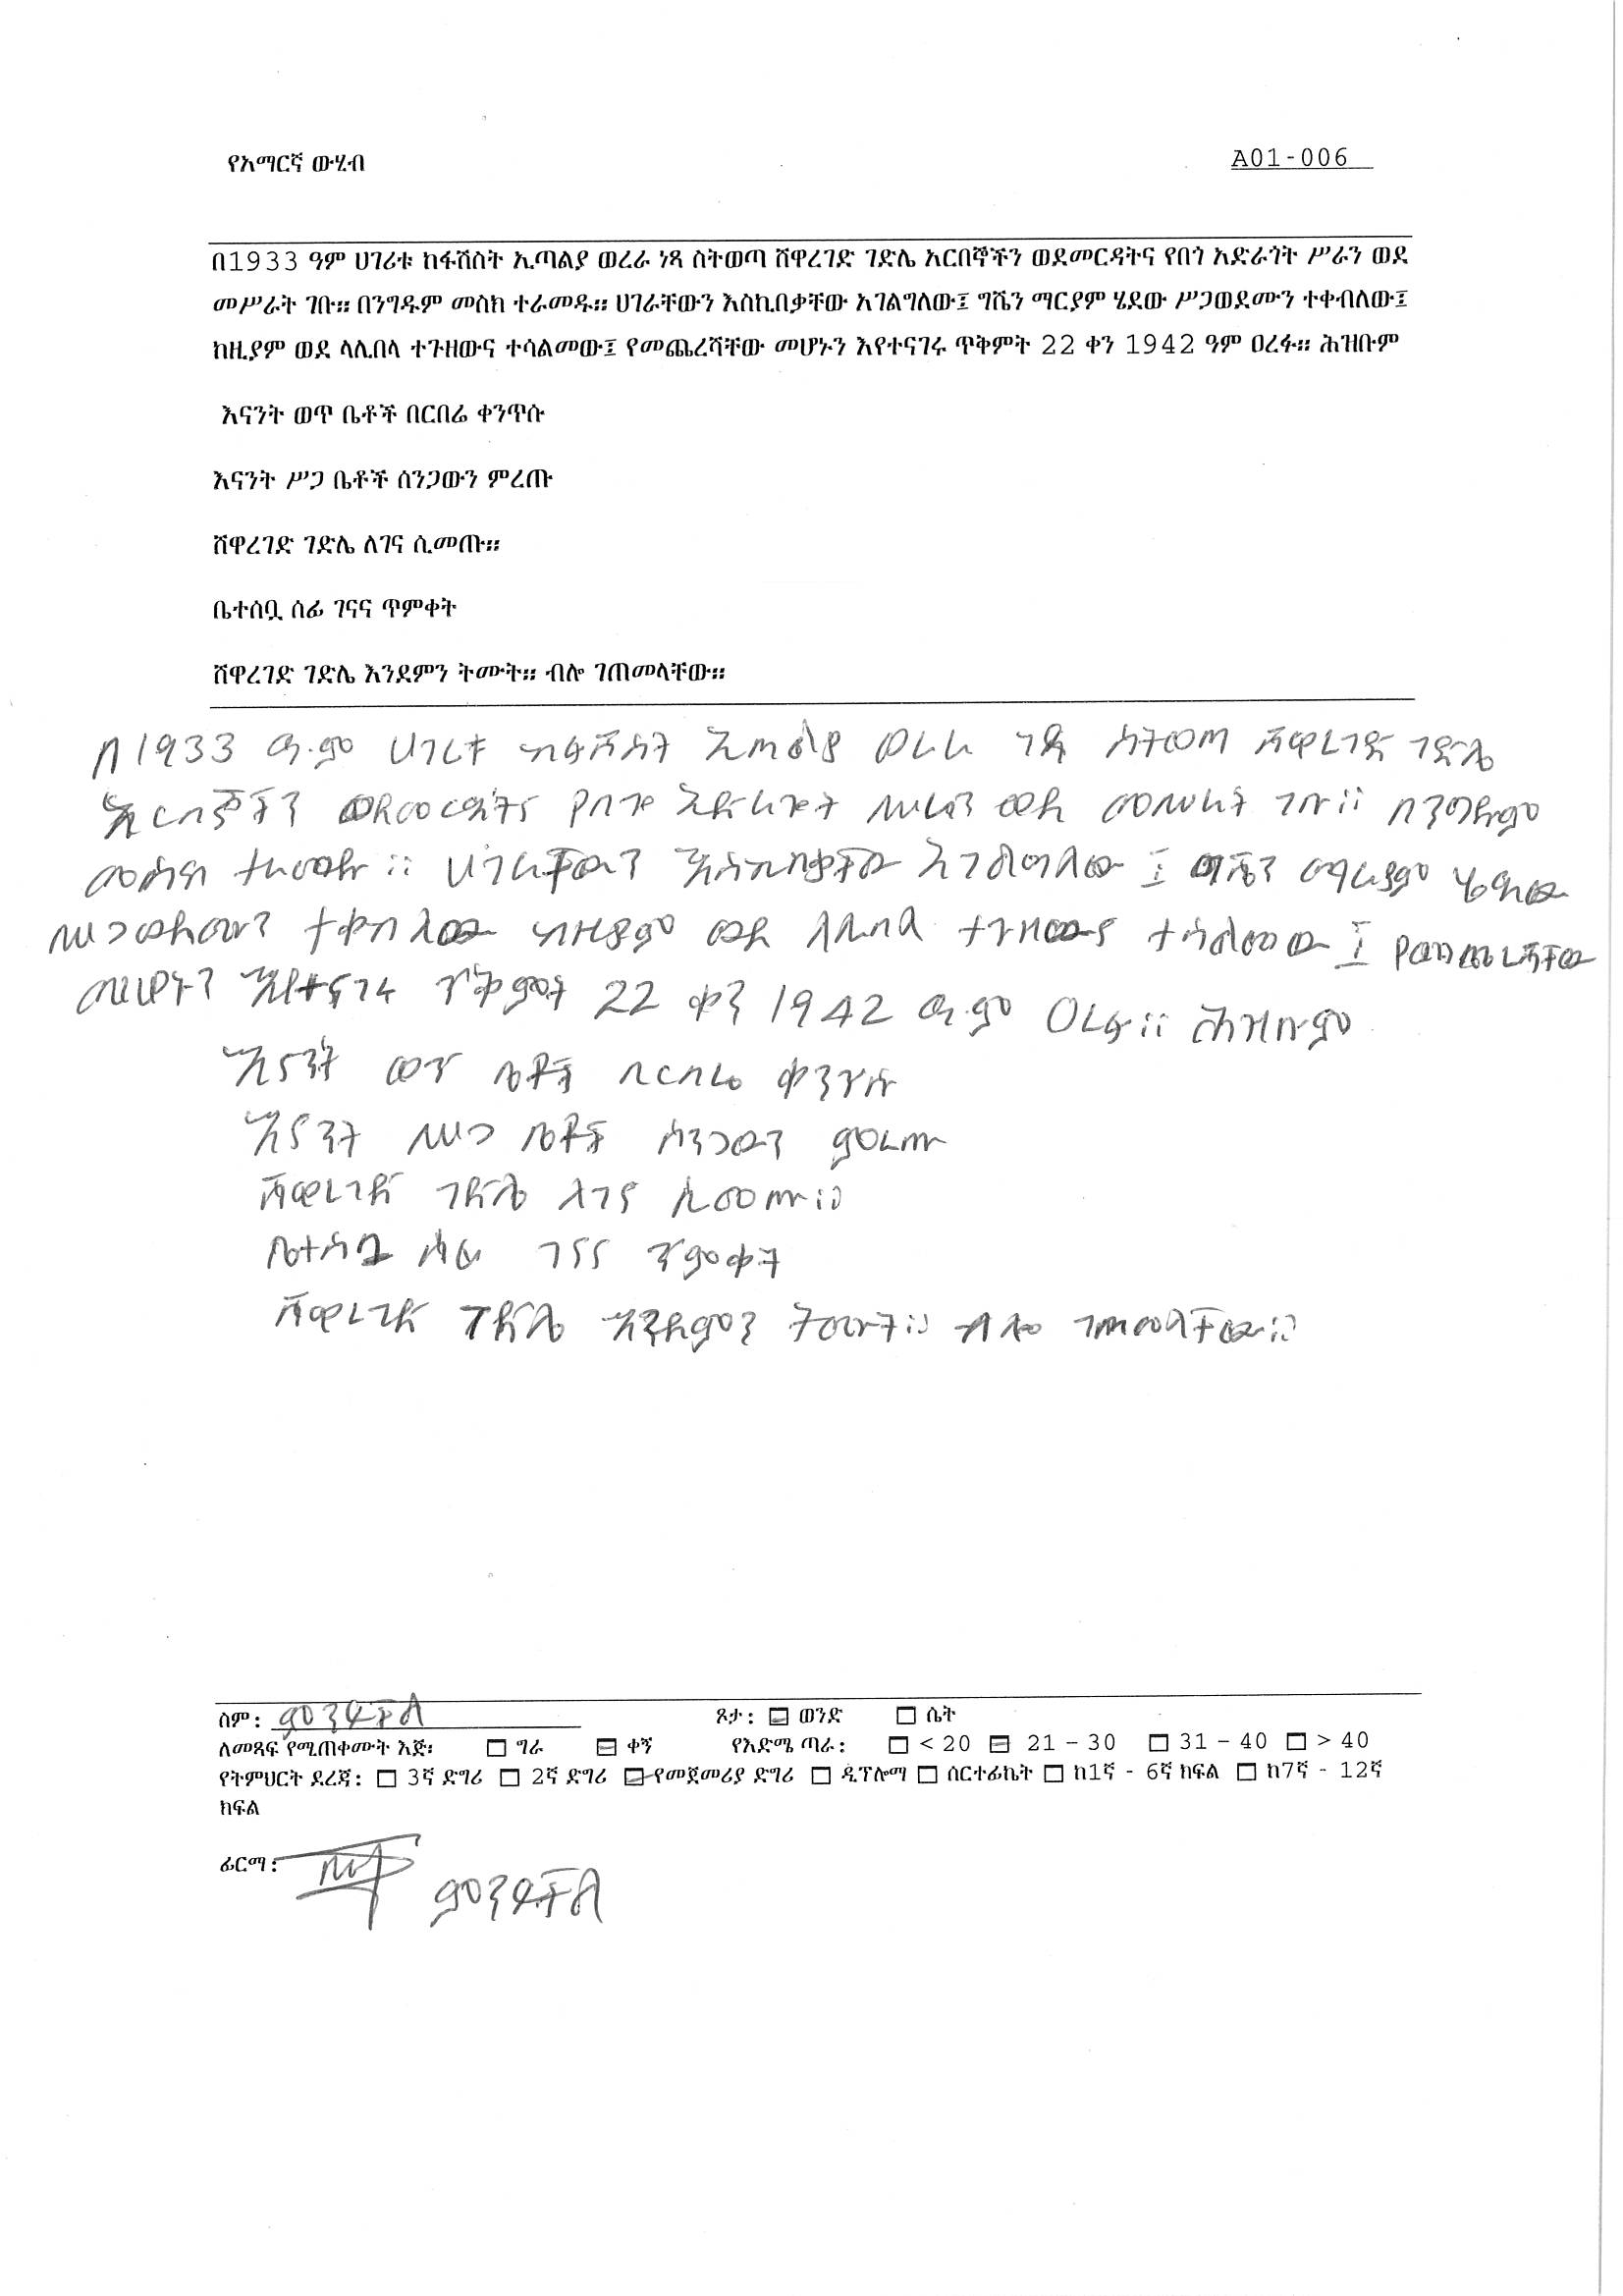 የአማርኛ ውሂብ
A01-006
በ1933 ዓም ሀገሪቱ ከፋሽስት ኢጣልያ ወረራ ነጻ ስትወጣ ሸዋረገድ ገድሌ አርበኞችን ወደመርዳትና የበጎ አድራጎት ሥራን ወደ
መሥራት ገቡ። በንግዱም መስክ ተራመዱ። ሀገራቸውን እስኪበቃቸው አገልግለው፤ ግሼን ማርያም ሄደው ሥጋወደሙን ተቀብለው፤
ከዚያም ወደ ላሊበላ ተጉዘውና ተሳልመው፤ የመጨረሻቸው መሆኑን እየተናገሩ ጥቅምት 22 ቀን 1942 ዓም ዐረፉ። ሕዝቡም
እናንት ወጥ ቤቶች በርበሬ ቀንጥሱ
እናንት ሥጋ ቤቶች ሰንጋውን ምረጡ
ሸዋረገድ ገድሌ ለገና ሲመጡ።
ቤተሰቧ ሰፊ ገናና ጥምቀት
ሸዋረገድ ገድሌ እንደምን ትሙት። ብሎ ገጠመላቸው።
በ1933 ዓ.ም ሀገሪቱ ከፋሽስት ኢጣልያ ወረራ ነጻ ስትወጣ ሸዋረገድ ገድሌ
አርበኞችን ወደመርዳትና የበጎ አድራጎት ሥራን ወደ መሥራት ገቡ። በንግዱም
መስክ ተራመዱ። ሀገራቸውን እስኪበቃቸው አገልግለው፤ ግሼን ማርያም ሄደው
ሥጋወደሙን ተቀብለው ከዚያም ወደ ላሊበላ ተጉዘውና ተሳልመው፤ የመጨረሻቸው
መሆኑን እየተናገሩ ጥቅምት 22 ቀን 1942 ዓ.ም ዐረፉ። ሕዝቡም
እናንት ወጥ ቤቶች በርበሬ ቀንጥሱ
እናንት ሥጋ ቤቶች ሰንጋውን ምረጡ
ሸዋረገድ ገድሌ ለገና ሲመጡ።
ቤተሰቧ ሰፊ ገናና ጥምቀት
ሸዋረገድ ገድሌ እንደምን ትሙት። ብሎ ገጠመላቸው።
ስም:
ጾታ: ወንድ ሴት
ለመጻፍ የሚጠቀሙት እጅ፡ ግራ ቀኝ የእድሜ ጣራ: < 20 21 – 30 31 – 40 > 40
የትምህርት ደረጃ: 3ኛ ድግሪ 2ኛ ድግሪ የመጀመሪያ ድግሪ ዲፕሎማ ሰርተፊኬት ከ1ኛ - 6ኛ ክፍል ከ7ኛ - 12ኛ
ክፍል
ፊርማ: